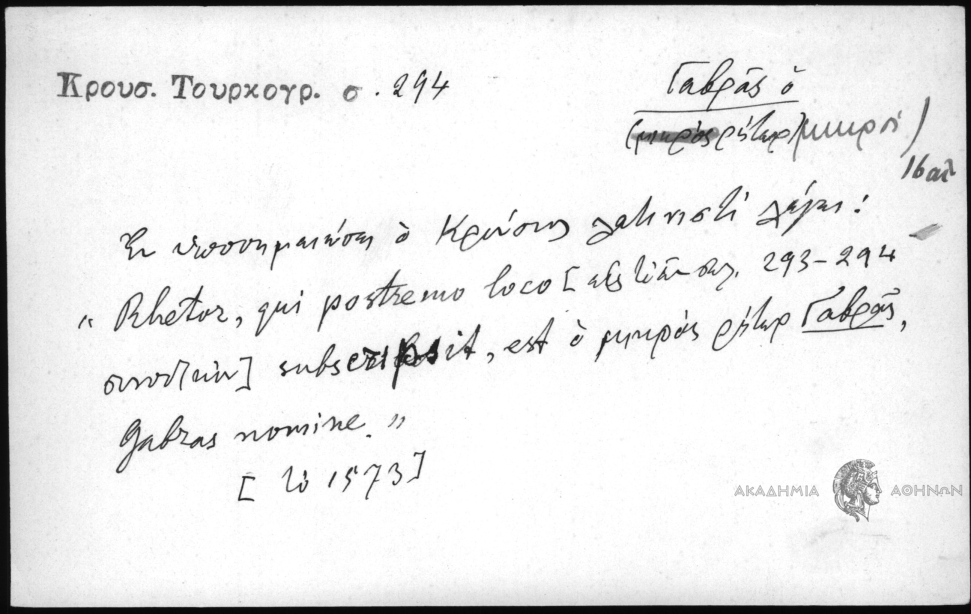 Κρουσ. Τουρκογρ. σ. 294
Γαβρᾶς ὁ
(μικρὸς ρήτωρ)
16 αἰ
Ἐν ὑποσημειώσει ὁ Κρούσιος λατινιστὶ λέγει:
"Rhetor, qui postremo loco [εἰς τὴν σελ. 293-294
] subscripsit, est ὁ μικρὸς ρήτωρ Γαβρᾶς,
Gabras nomine."
[τὸ 1573]
ΑΚΑΔΗΜΙΑ ΑΘΗΝΩΝ